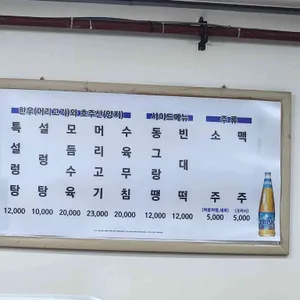 한우(머리고기)와 호주산(양지)
특설렁탕 12,000
설렁탕 10,000
모듬수육 20,000
머리고기 23,000
수육무침 20,000
사이드메뉴
동그랑땡 12,000
빈대떡 12,000
주 류
소주 5,000
맥주 5,000